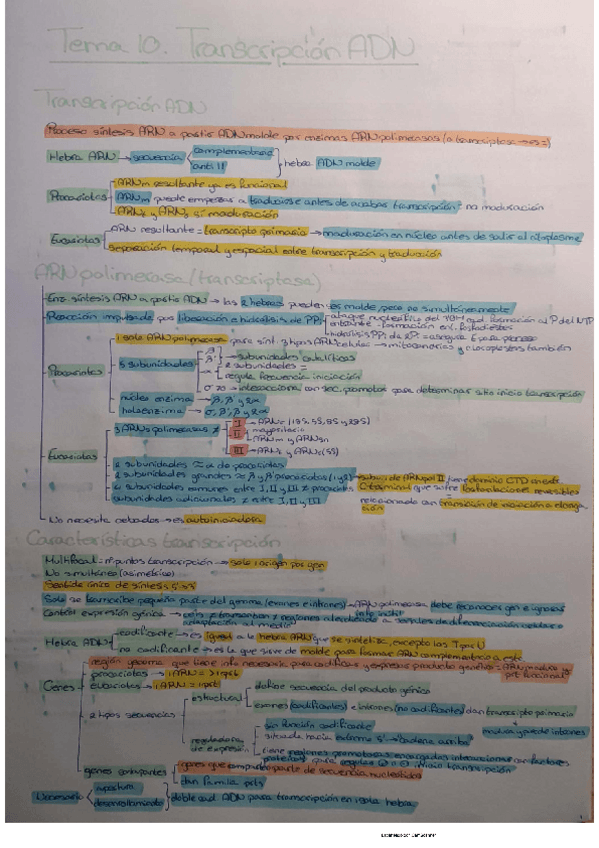 Tema 10. Transcripción ADN
Transcripción ADN
Proceso síntesis ARN a partir ADN molde por enzimas ARN polimerasas (o transcriptasa → es =)
Hebra ARN → secuencia complementaria hebra ADN molde
anti //
Procariotas ARNm resultante ya es funcional
ARNm puede empezar a traducirse antes de acabar transcripción = no maduración
ARNt y ARNr sí maduración
Eucariotas ARN resultante = transcripto primario → maduración en núcleo antes de salir al citoplasma
separación temporal y espacial entre transcripción y traducción
ARN polimerasa (transcriptasa)
Enz. síntesis ARN a partir ADN → las 2 hebras pueden ser molde, pero no simultáneamente
Reacción impulsada por liberación e hidrólisis de PPi
ataque nucleofílico del 3'OH
formación enl. fosfodiéster
hidrólisis PPi
1 sola ARN polimerasa para sint. 3 tipos ARN celulares → mitocondrias y cloroplastos también
Procariotas 5 subunidades β
β' → subunidades catalíticas
α 2 subunidades =
regula frecuencia iniciación
σ 70 → interacciona con sec. promotor para determinar sitio inicio transcripción
núcleo enzima → β, β' y 2α
holoenzima → σ, β', β y 2α
Eucariotas 3 ARN polimerasas ≠ I → ARNr (18S, 5,8S y 28S)
II mayoritaria
ARNm y ARNsn
III → ARNt y ARNr (5S)
2 subunidades ≈ α de procariotas
2 subunidades grandes ≈ β y β' procariotas
4 subunidades comunes entre I, II y III ≠ procariotas
subunidades adicionales ≠ entre I, II y III
subun. de ARNpol II tiene dominio CTD en extr.
C-terminal que sufre fosforilaciones reversibles
relacionado con transición de iniciación a elongación
No necesita cebador → es autoiniciadora
Características transcripción
Multifocal = nº puntos transcripción → solo 1 origen por gen
No simultánea (asimétrica)
Sentido único de síntesis 5'→3'
Solo se transcribe pequeña parte del genoma (exones e intrones) → ARN polimerasa debe reconocer gen e ignorar
Control expresión génica → regiones atendiendo a señales de diferenciación celular o
adaptación al medio
Hebra ADN codificante → es igual a la hebra ARN que se sintetiza, excepto las T por U
no codificante → es la que sirve de molde para formar ARN complementario a este
Genes región genoma que tiene info necesaria para codificar y expresar producto génico = ARN maduro o
prt funcional
procariotas → 1 ARN = > 1 prt
eucariotas → 1 ARN = 1 prt
2 tipos secuencias estructural define secuencia del producto génico
exones (codificantes) e intrones (no codificantes) dan transcripto primario
madura y pierde intrones
reguladora de expresión sin función codificante
situada hacia extremo 5' → "cadena arriba"
tiene regiones promotoras encargadas interaccionar con factores
proteicos para regular ⊕ o ⊖ inicio transcripción
genes compuestos genes que comparten parte de secuencia nucleótidos
dan familia prts
Necesario apertura
desenrollamiento doble cad. ADN para transcripción en 1 sola hebra